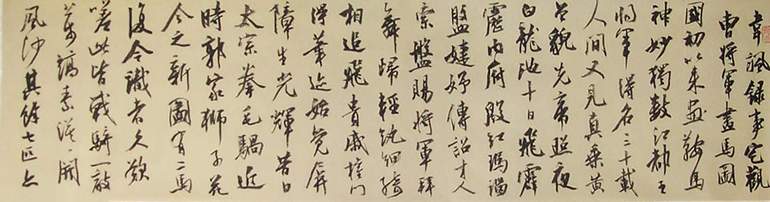 韋諷錄事宅觀
曹將軍畫馬圖
國初以來畫鞍馬
神妙獨數江都王
將軍得名三十載
人間又見真乘黃
曾貌先帝照夜
白龍池十日飛霹
靂內府殷紅瑪瑙
盤婕妤傳詔才人
索盤賜將軍拜
舞歸輕紈細綺
相追飛貴戚權門
得筆迹始覺屏
障生光輝昔日
太宗拳毛騧近
時郭家獅子花
今之新圖有二馬
復令識者久歎
嗟此皆戰騎一敵
萬縞素漠々開
風沙其餘七匹亦